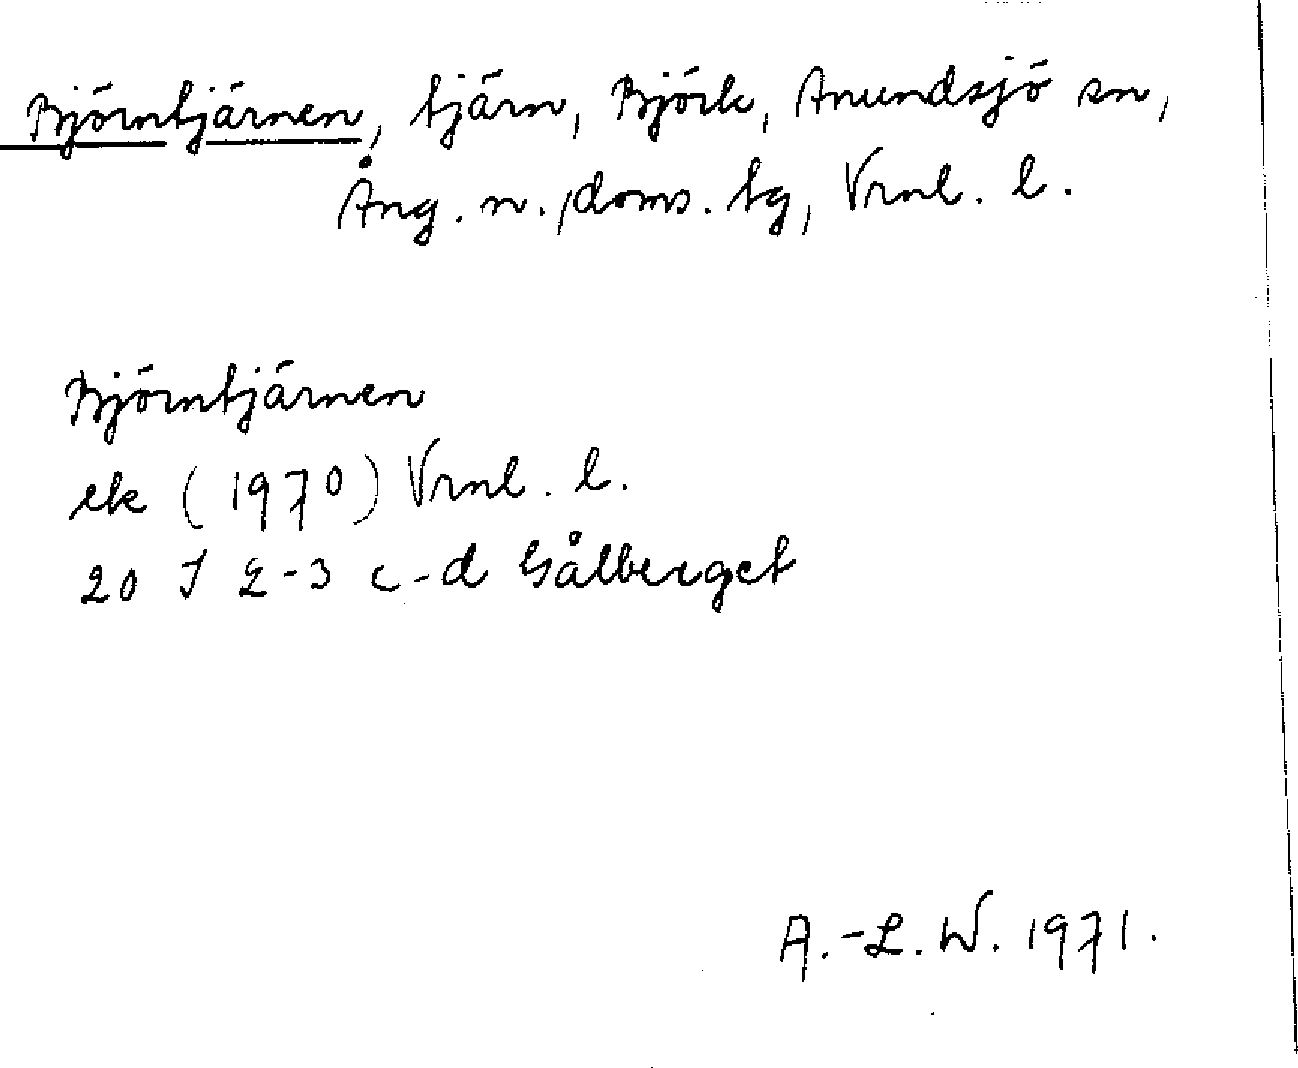 Björntjärnen, tjärn, Björk, Anundsjö sn,
Ång. n. doms. tg, Vrnl. l.
Björntjärnen
ek (1970) Vrnl. l.
20 I 2-3 c-d Gålberget
A.-L. W. 1971.